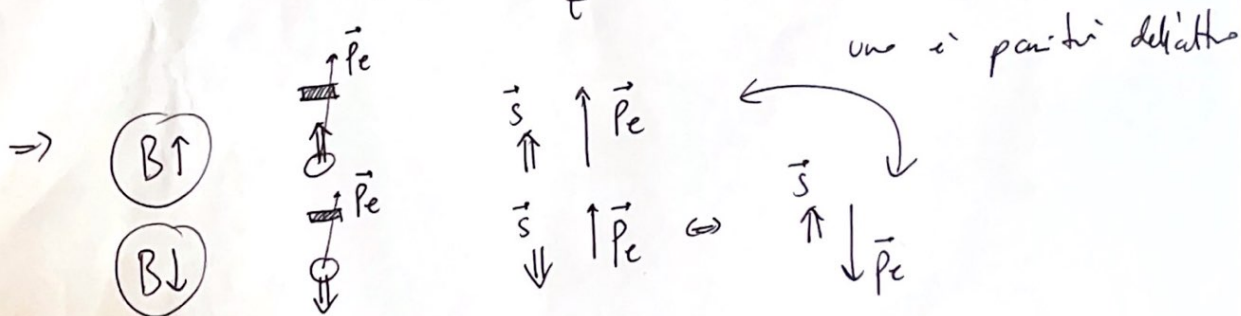 t
uno è parità dell'altro
⇒ B↑ p⃗e s⃗ ⇑ ↑ p⃗e
B↓ p⃗e s⃗ ⇓ ↑ p⃗e ⇔ s⃗ ⇑ ↓ p⃗e